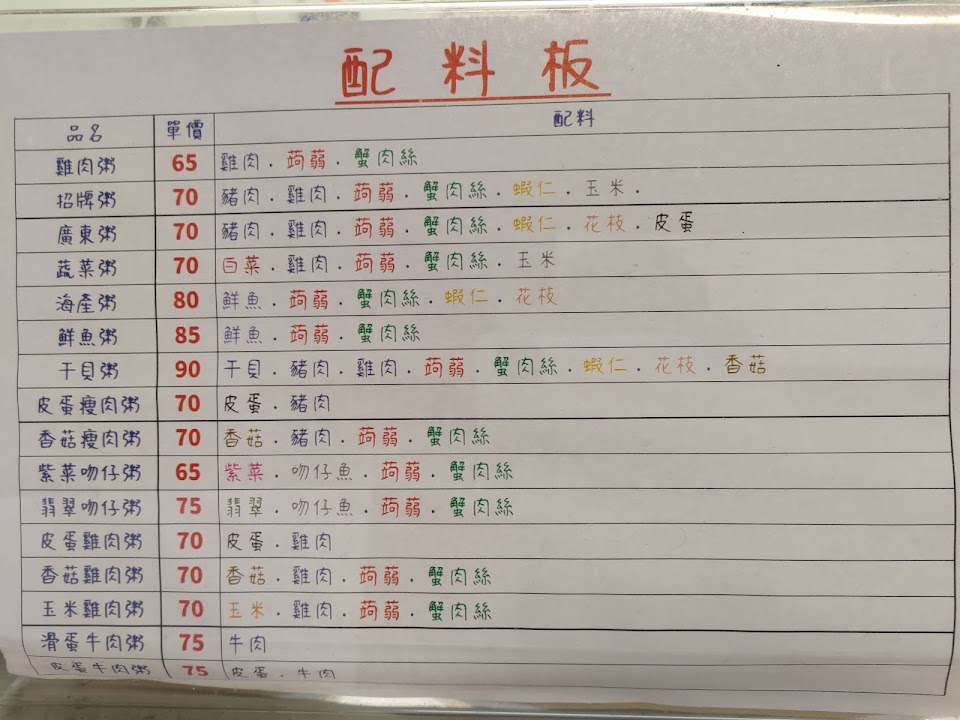 配料板
品名 單價 配料
雞肉粥 65 雞肉.蒟蒻.蟹肉絲
招牌粥 70 豬肉.雞肉.蒟蒻.蟹肉絲.蝦仁.玉米.
廣東粥 70 豬肉.雞肉.蒟蒻.蟹肉絲.蝦仁.花枝.皮蛋
蔬菜粥 70 白菜.雞肉.蒟蒻.蟹肉絲.玉米
海產粥 80 鮮魚.蒟蒻.蟹肉絲.蝦仁.花枝
鮮魚粥 85 鮮魚.蒟蒻.蟹肉絲
干貝粥 90 干貝.豬肉.雞肉.蒟蒻.蟹肉絲.蝦仁.花枝.香菇
皮蛋瘦肉粥 70 皮蛋.豬肉
香菇瘦肉粥 70 香菇.豬肉.蒟蒻.蟹肉絲
紫菜吻仔粥 65 紫菜.吻仔魚.蒟蒻.蟹肉絲
翡翠吻仔粥 75 翡翠.吻仔魚.蒟蒻.蟹肉絲
皮蛋雞肉粥 70 皮蛋.雞肉
香菇雞肉粥 70 香菇.雞肉.蒟蒻.蟹肉絲
玉米雞肉粥 70 玉米.雞肉.蒟蒻.蟹肉絲
滑蛋牛肉粥 75 牛肉
皮蛋牛肉粥 75 皮蛋.牛肉